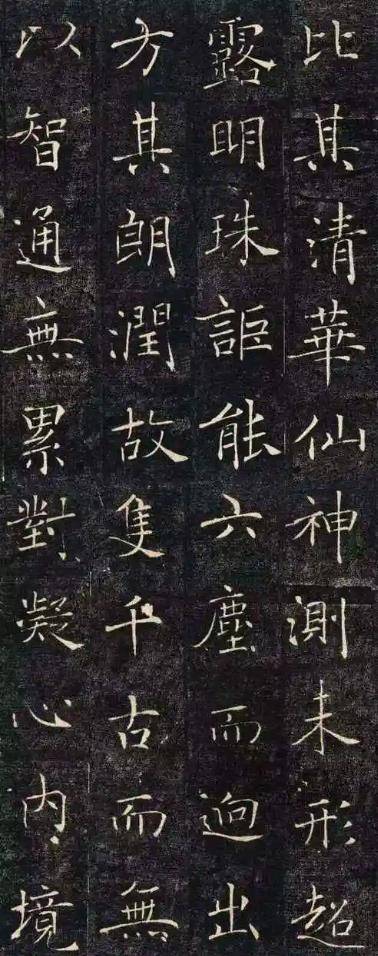 比其清華仙神測未形超
露明珠詎能六塵而逈出
方其朗潤故隻千古而無
以智通無累對凝心內境